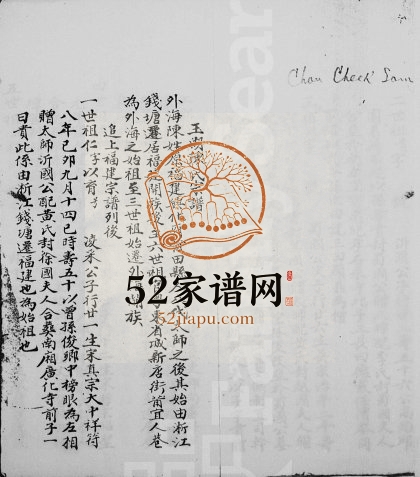 Chan Cheek Sam
玉湖陳氏宗譜
外海陳姓原福建田縣太師之後其始由浙江
錢塘遷居福建開族後至六世祖東省城新居街前宜人巷
為外海之始祖至三世祖始遷外族
追上福建宗譜列後
一世祖仁字以育号 公子行廿一生宋真宗大中祥符
八年己夘九月十四巳時壽五十以曾孫俊卿中榜眼為左相
贈太師沂國公配黃氏封徐國夫人合葬南廂廣化寺前子一
曰貴此係由浙江錢塘遷福建也為始祖也
52家谱网
52jiapu.com